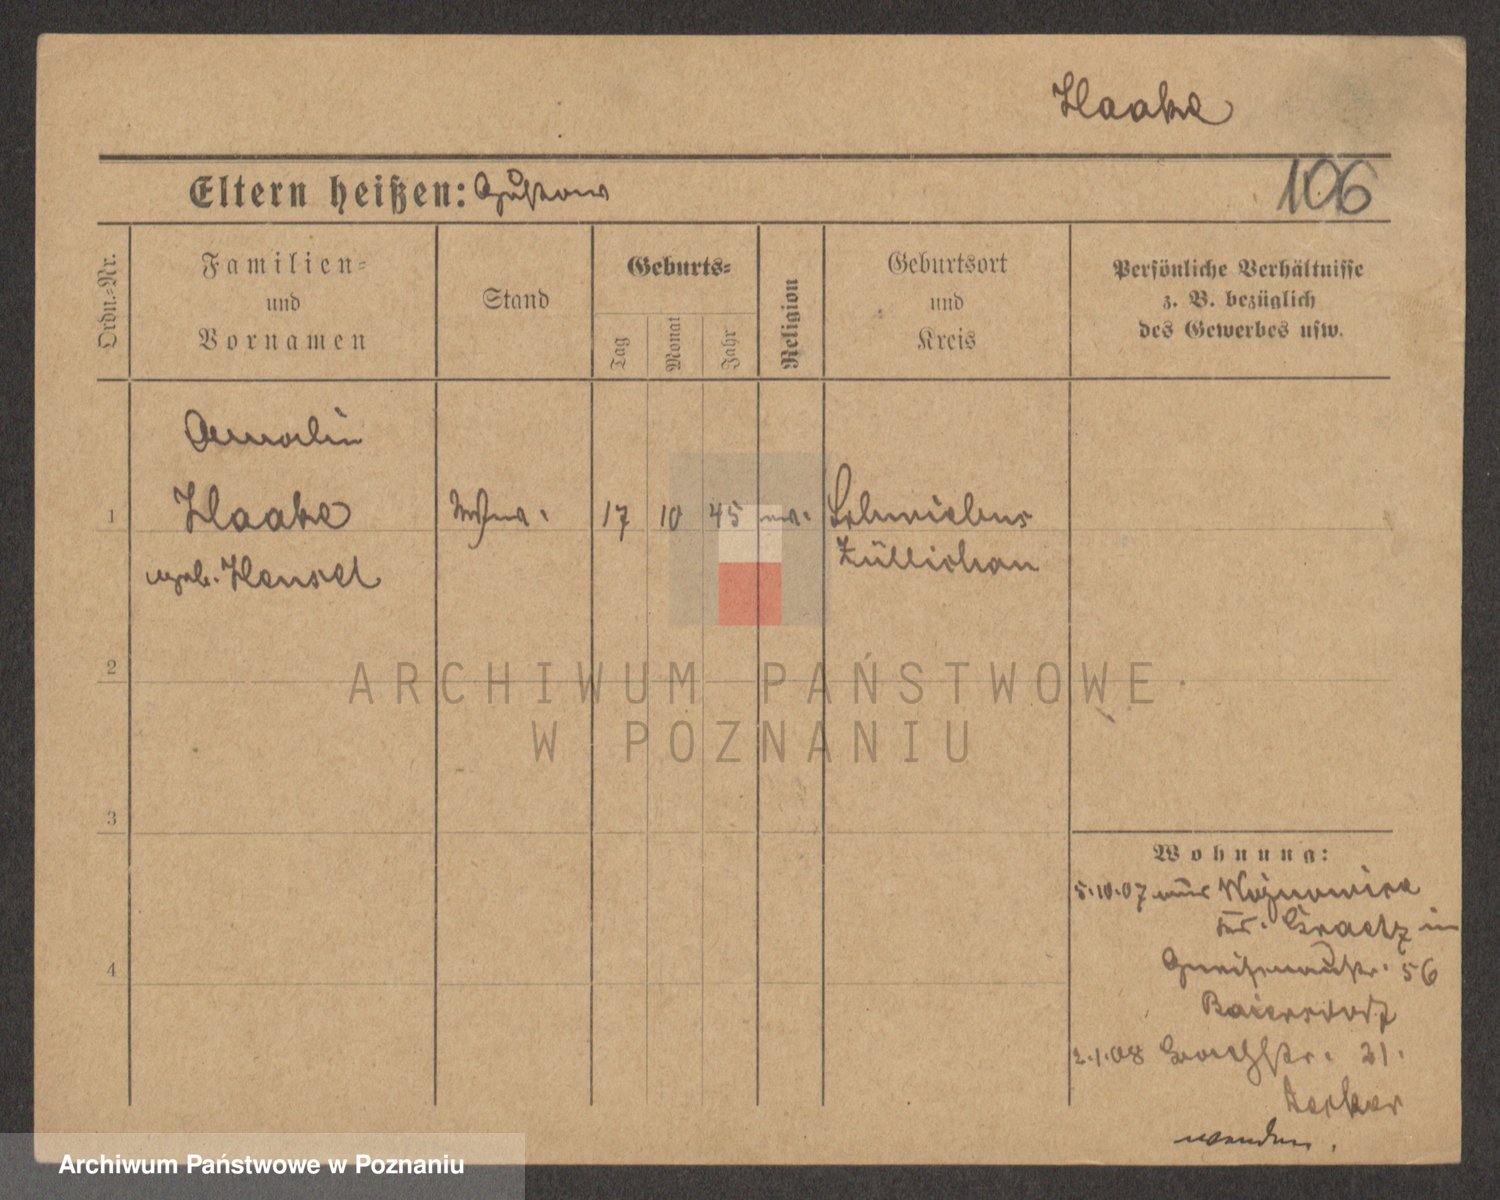 Haake
Eltern heißen: Gustav
106
Ordn.=Nr.
Familien=
und
Vornamen
Stand
Geburts=
Tag
Monat
Jahr
Religion
Geburtsort
und
Kreis
Persönliche Verhältnisse
z. B. bezüglich
des Gewerbes usw.
Amalie
1 Haake 17 10 45 Schwiebus
geb. Hensel Züllichau
2
3
4
ARCHIWUM PAŃSTWOWE
W POZNANIU
Wohnung:
5.10.07 aus Woznowice
Kr. Graetz in
Gneisenaustr. 56
Baiersdorf
2.1.08 21.
wenden.
Archiwum Państwowe w Poznaniu